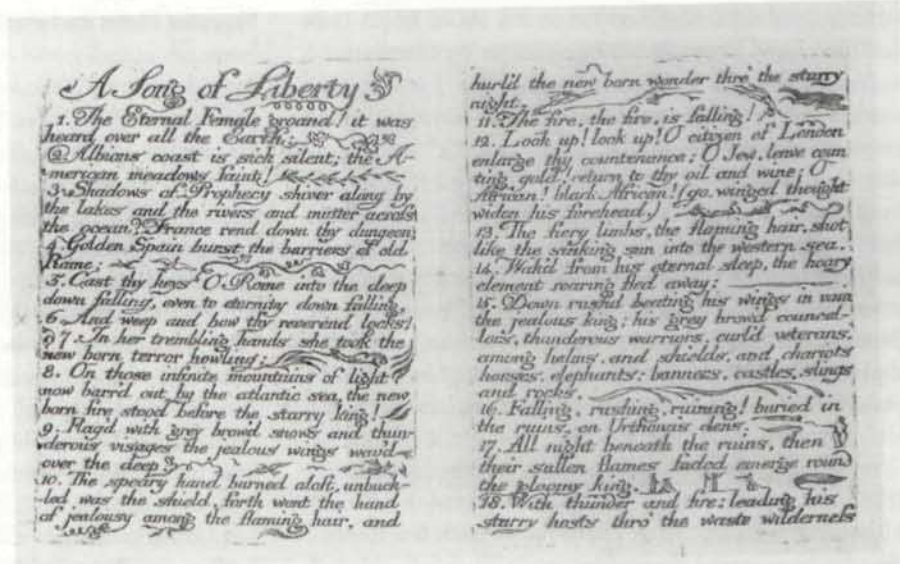 A Song of Liberty
1. The Eternal Female groand! it was
heard over all the Earth:
2. Albions coast is sick silent; the A-
merican meadows faint!
3. Shadows of Prophecy shiver along by
the lakes and the rivers and mutter across
the ocean? France rend down thy dungeon;
4. Golden Spain burst the barriers of old
Rome;
5. Cast thy keys O Rome into the deep
down falling, even to eternity down falling,
6. And weep and bow thy reverend locks!
7. In her trembling hands she took the
new born terror howling;
8. On those infinite mountains of light
now barr'd out by the atlantic sea, the new
born fire stood before the starry king!
9. Flag'd with grey brow'd snows and thun-
derous visages the jealous wings wav'd
over the deep
10. The speary hand burned aloft, unbuck-
led was the shield, forth went the hand
of jealousy among the flaming hair, and
hurl'd the new born wonder thro' the starry
night.
11. The fire, the fire, is falling!
12. Look up! look up! O citizen of London
enlarge thy countenance; O Jew, leave coun
ting gold! return to thy oil and wine; O
African! black African! (go. winged thought
widen his forehead.)
13. The fiery limbs, the flaming hair, shot
like the sinking sun into the western sea.
14. Wak'd from his eternal sleep, the hoary
element roaring fled away:
15. Down rushd beating his wings in vain
the jealous king; his grey brow'd council-
lors, thunderous warriors, curl'd veterans,
among helms, and shields, and chariots
horses, elephants: banners, castles, slings
and rocks,
16. Falling, rushing, ruining! buried in
the ruins, on Urthona's dens.
17. All night beneath the ruins, then
their sullen flames faded emerge round
the gloomy king,
18. With thunder and fire: leading his
starry hosts thro' the waste wilderness